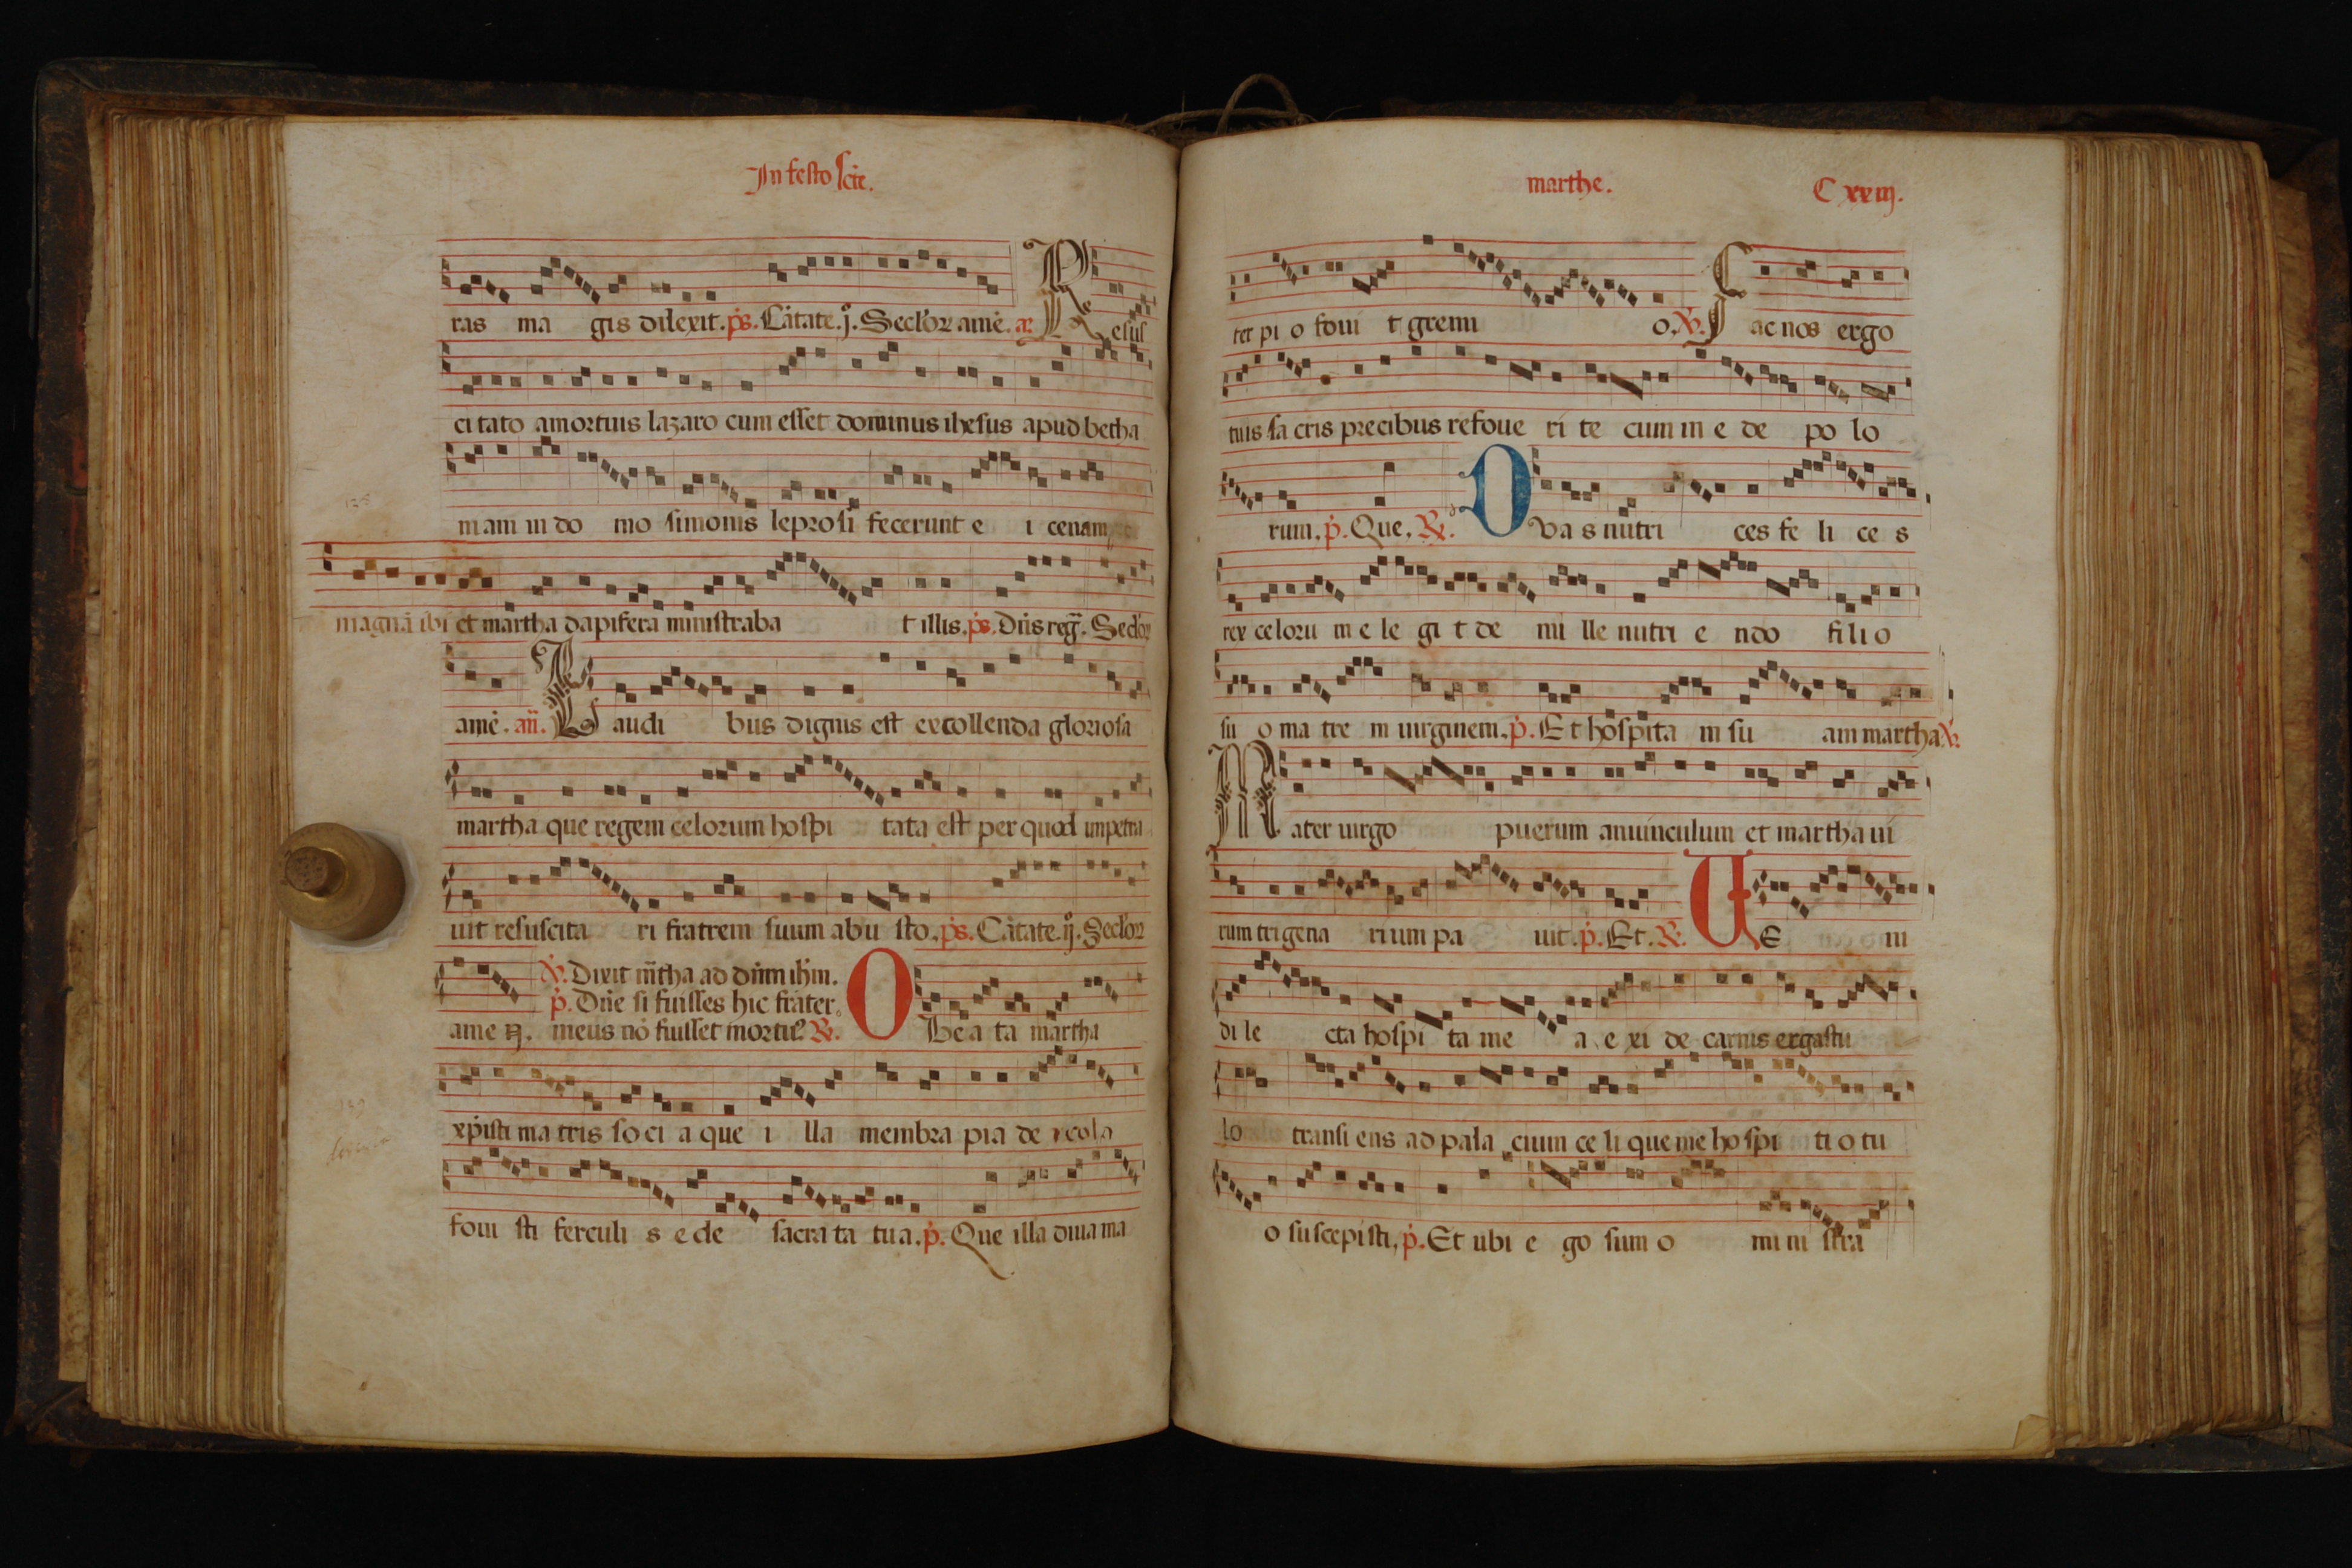 In festo scte.
ras ma gis dilexit. ps. Cãtate. j. Seclor amē. a Resus
ci tato amortuis lazaro cum esset dominus ihesus apud betha
niam in do mo simonis leprosi fecerunt e i cenam
magnā ibi et martha dapifera ministraba t illis. ps. Dñs reg. Seclor
amē. añ. Laudi bus dignis est extollenda gloriosa
martha que regem celorum hospi tata est per quod impetra
uit resuscita ri fratrem suum abu sto. ps. Cãtate. ij. Seclor
ṽ. Dixit mtha ad dñm ihm.
p. Dñe si fuisses hic frater
ame n. meus nō fuisset mortu9 R. O Be a ta martha
xpisti ma tris so ci a que i lla membra pia de i cola
foui sti ferculi s e de sacra ta tu a. p. Que illa diua ma
marthe. C xxiij.
ter pi o foui t gremi o. ṽ. Fac nos ergo
tuis sa cris precibus refoue ri te cum in e de po lo
rum. p. Que. R. Ouas nutri ces fe li ce s
rex celoru m e le gi t de mi lle nutri e ndo fi li o
su o ma tre m uirginem. p. Et hospita m su am martha ṽ.
Mater uirgo puerum anuinculum et martha ui
rum trigena rium pa uit. p. Et. R. Ue ni
di le cta hospi ta me a e xi de carnis ergastu
lo transi ens ad pala cium ce li que me ho spi ti o tu
o suscepisti. p. Et ubi e go sum o mi ni stra